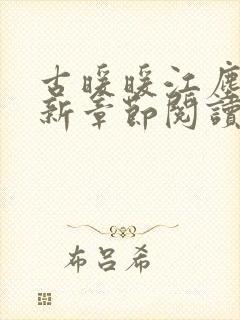 古暖暖江塵
新章節閱讀
布呂希